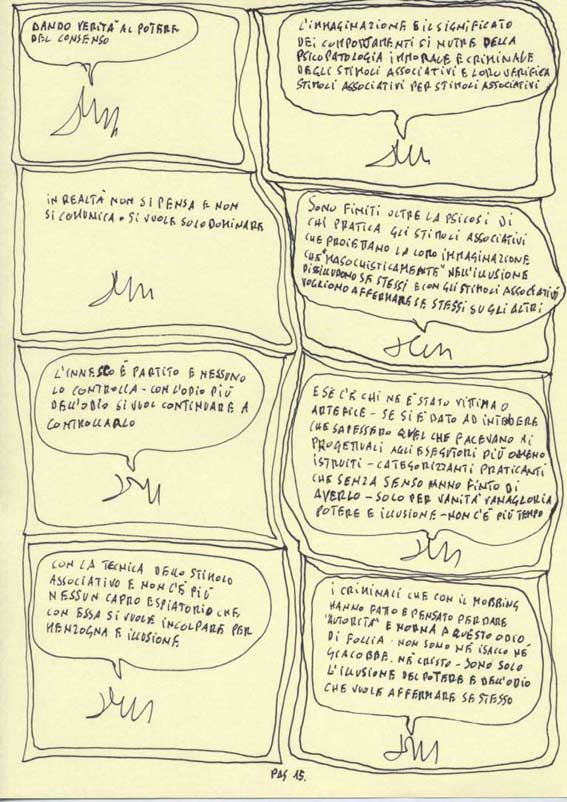 DANDO VERITÀ AL POTERE
DEL CONSENSO
L'IMMAGINAZIONE E IL SIGNIFICATO
DEI COMPORTAMENTI SI NUTRE DELLA
PSICOPATOLOGIA IMMORALE E CRIMINALE
DEGLI STIMOLI ASSOCIATIVI E LORO VERIFICA
STIMOLI ASSOCIATIVI PER STIMOLI ASSOCIATIVI
IN REALTÀ NON SI PENSA E NON
SI COMUNICA. SI VUOLE SOLO DOMINARE
SONO FINITI OLTRE LA PSICOSI DI
CHI PRATICA GLI STIMOLI ASSOCIATIVI
CHE PROIETTANO LA LORO IMMAGINAZIONE
CHE "MASOCHISTICAMENTE" NELL'ILLUSIONE
DISILLUDONO SE STESSI E CON GLI STIMOLI ASSOCIATIVI
VOGLIONO AFFERMARE SE STESSI SUGLI ALTRI
L'INNESCO È PARTITO E NESSUNO
LO CONTROLLA - CON L'ODIO PIÙ
DELL'ODIO SI VUOL CONTINUARE A
CONTROLLARLO
E SE C'È CHI NE È STATO VITTIMA O
ARTEFICE - SE SI È DATO AD INTENDERE
CHE SAPESSERO QUEL CHE FACEVANO AI
PROGETTUALI AGLI ESECUTORI PIÙ O MENO
ISTRUITI - CATEGORIZZANTI PRATICANTI
CHE SENZA SENSO HANNO FINTO DI
AVERLO - SOLO PER VANITÀ VANAGLORIA
POTERE E ILLUSIONE - NON C'È PIÙ TEMPO
CON LA TECNICA DELLO STIMOLO
ASSOCIATIVO E NON C'È PIÙ
NESSUN CAPRO ESPIATORIO CHE
CON ESSA SI VUOLE INCOLPARE PER
MENZOGNA E ILLUSIONE
I CRIMINALI CHE CON IL MOBBING
HANNO FATTO E PENSATO PER DARE
"AUTORITÀ" E NORMA A QUESTO ODIO
DI FOLLIA. NON SONO NÉ ISACCO NÉ
GIACOBBE. NÉ CRISTO - SONO SOLO
L'ILLUSIONE DEL POTERE E DELL'ODIO
CHE VUOLE AFFERMARE SE STESSO
PAG 15.